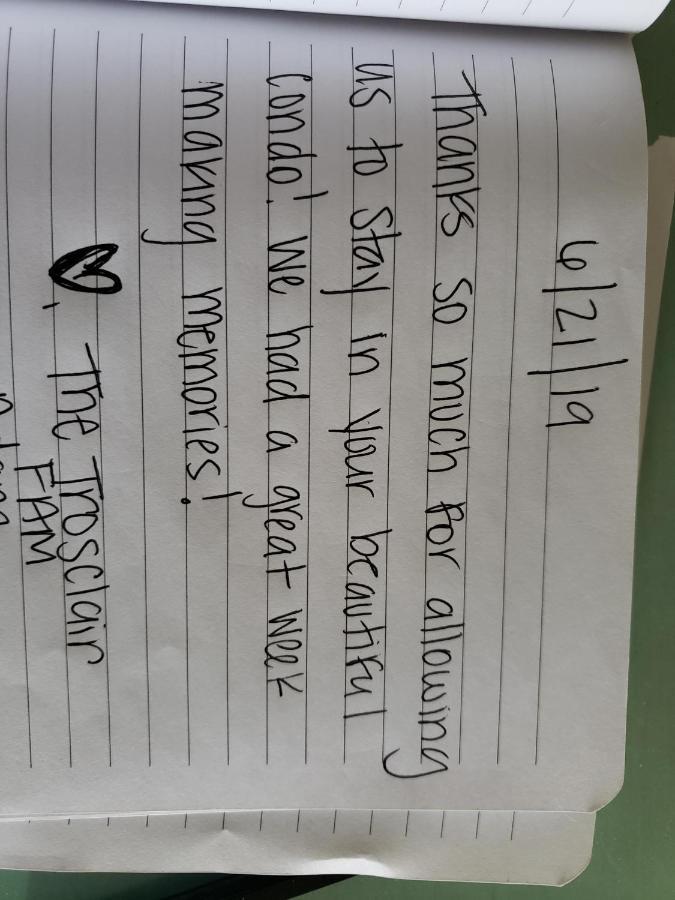 6/21/19
Thanks so much for allowing
us to stay in your beautiful
condo! We had a great week
making memories!
♥, The Trosclair
FAM